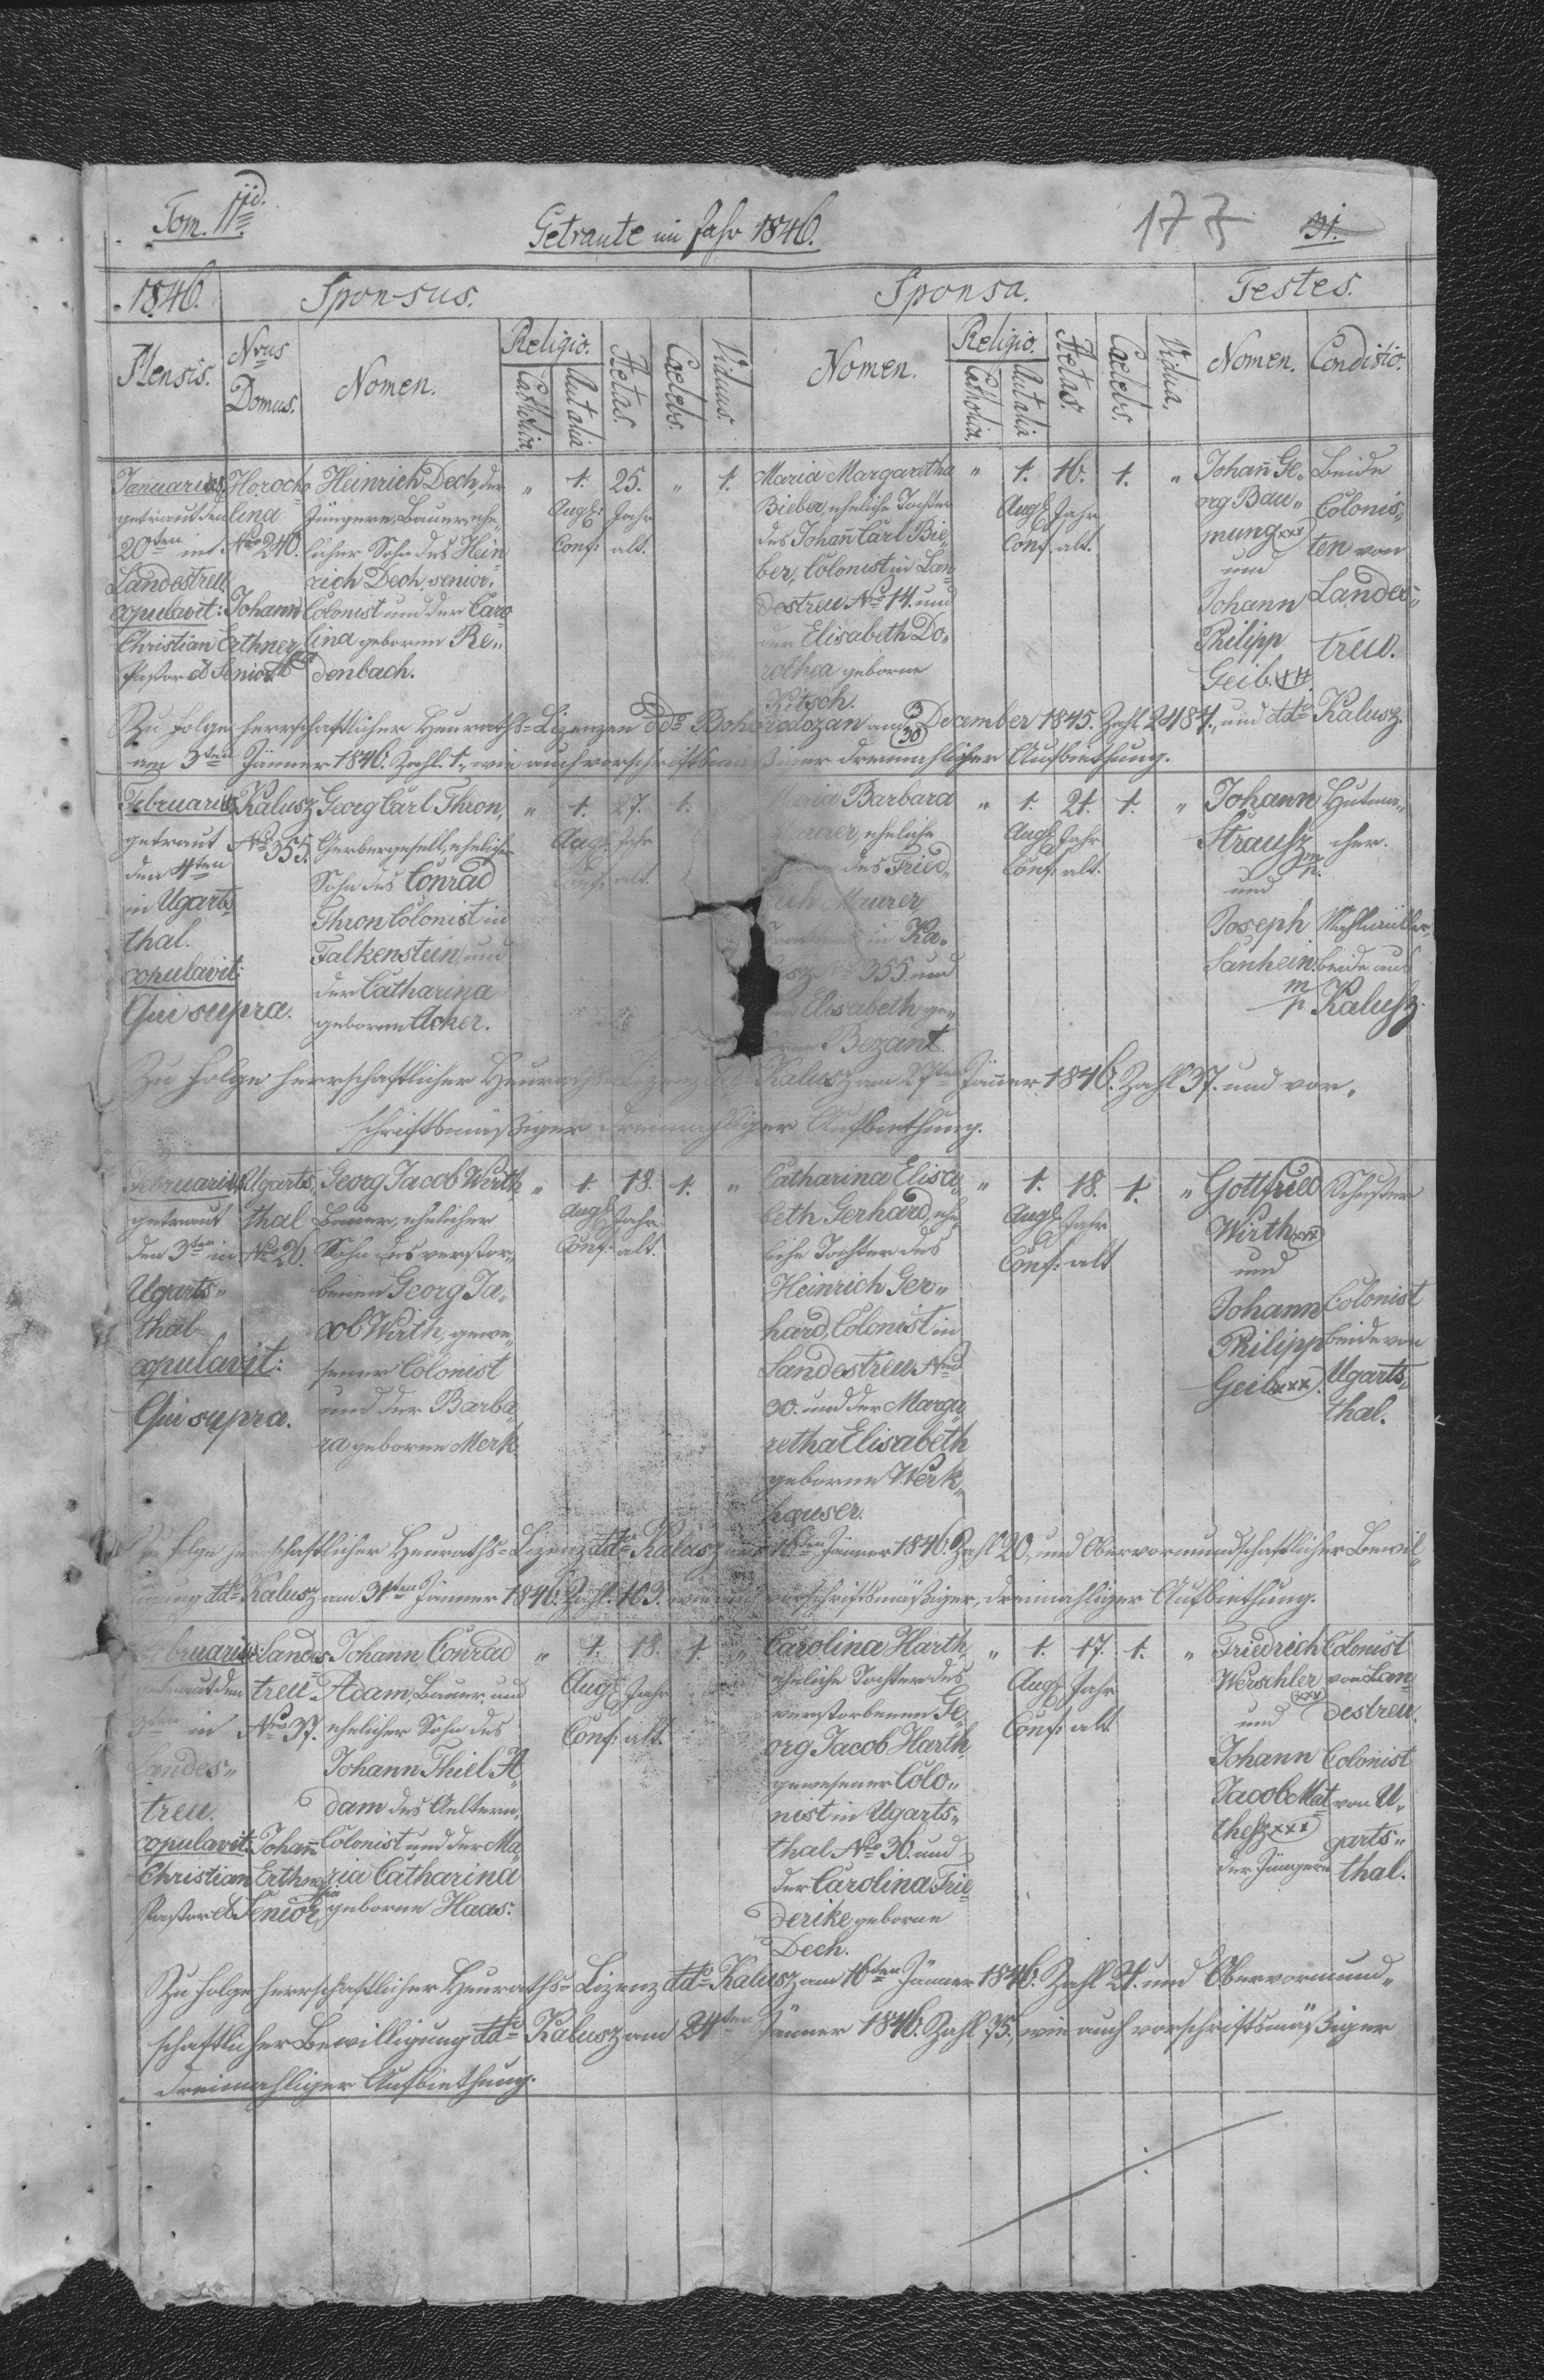 Tom. II.
Getraute im Jahr 1846.
177
31.
1846. Sponsus. Sponsa. Testes.
Mensis. Nrus Domus. Nomen. Religio. Catholica. Aut alia Aetas. Caelebs. Viduus. Nomen. Religio. Catholica. Aut alia Aetas. Caelebs. Vidua. Nomen. Conditio.
Januarius.
getraut den
20ten in
Landestreu.
copulavit: Johann
Christian Erthner
Pastor et Senior
Horocho
lina
Nro 240.
Heinrich Dech, der
Jüngere, Bauer, ehe„
licher Sohn des Hein
rich Dech, senior,
Colonist und der Caro
lina geborene Re„
denbach.
„ 1. 25. „ 1.
Augs: Jahr
Conf: alt.
Maria Margaretha
Bieber, eheliche Tochter
des Johann Carl Bie„
ber, Colonist in Lan„
destreu Nro 14. und
der Elisabeth Do„
rothea geborne
Kitsch.
„ 1. 16. 1. „
Augs. Jahr
Conf. alt.
Johann Ge„
org Bau„
mung xxx
und
Johann
Philipp
Geib.
Beide
Colonis„
ten von
Landes„
treu.
Zu Folge herrschaftlicher Heuraths-Lizenzen ddo Bohorodczan am 30 December 1845. Zahl 2484., und ddo Kalusz
am 3ten Jänner 1846. Zahl 1., wie auch vorschriftsmäßiger dreimahliger Aufbiethung.
Februarius
getraut
den 4ten
in Ugarts
thal.
copulavit:
Qui supra.
Kalusz
Nro 355.
Georg Carl Thron,
Gerbergesell, ehelicher
Sohn des Conrad
Thron Colonist in
Falkenstein, und
der Catharina
geborene Acker.
„ 1. 27. 1.
Augs. Jahr
Conf: alt.
Maria Barbara
Maurer, eheliche
des Fried„
rich Maurer
in Ka„
lusz Nro 355. und
Elisabeth ge„
Bezant.
„ 1. 21. 1. „
Augs. Jahr
Conf: alt.
Johann
Straufz
und
Joseph
Sanhein.
m
p
Hutma„
cher.
Mühlmüller,
beide aus
Kalusz.
Zu Folge herrschaftlicher Heuraths-Lizenz ddo Kalusz am 27ten Jänner 1846. Zahl 37. und vor„
schriftsmäßiger dreimahliger Aufbiethung.
Februarius
getraut
den 3ten in
Ugarts„
thal
copulavit:
Qui supra.
Ugarts„
thal
Nro 20.
Georg Jacob Wirth
Bauer, ehelicher
Sohn des verstor„
benen Georg Ja„
cob Wirth, gewe„
sener Colonist
und der Barba„
ra geborene Merk.
„ 1. 18. 1. „
Augs. Jahr
Conf: alt.
Catharina Elisa„
beth Gerhard, ehe„
liche Tochter des
Heinrich Ger„
hard, Colonist in
Landestreu Nro
30. und der Marga„
retha Elisabeth
geborene Werk„
hauser.
„ 1. 18. 1. „
Augs. Jahr
Conf: alt
Gottfried
Wirth xxx
und
Johann
Philipp
Geib xxx.
Schuster
Colonist
beide von
Ugarts„
thal.
Zu Folge herrschaftlicher Heuraths-Lizenz ddo Kalusz am 16ten Jänner 1846. Zahl 20., und Obervormundschaftlicher Bewil„
ligung ddo Kalusz am 31ten Jänner 1846. Zahl 109. wie auch vorschriftsmäßiger, dreimahliger Aufbiethung.
Februarius.
getraut den
3ten in
Landes„
treu.
copulavit: Johann
Christian Erthner
Pastor et Senior
Landes
treu.
Nro 37.
Johann Conrad
Adam, Bauer, und
ehelicher Sohn des
Johann Thiel A„
dam des Aeltern,
Colonist und der Ma„
ria Catharina
geborne Haas:
„ 1. 18. 1. „
Augs. Jahr
Conf: alt.
Carolina Harth,
eheliche Tochter des
verstorbenen Ge„
org Jacob Harth,
gewesener Colo„
nist in Ugarts„
thal Nro 36. und
der Carolina Frie„
derike geborne
Dech.
„ 1. 17. 1. „
Augs. Jahr
Conf: alt
Friedrich
Werschler
xxx
und
Johann
Jacob Mat
thesz xxx
der Jüngere
Colonist
von Lan„
destreu.
Colonist
von U„
garts„
thal.
Zu Folge herrschaftlicher Heuraths-Lizenz ddo Kalusz am 16ten Jänner 1846. Zahl 21. und Obervormund„
schaftlicher Bewilligung ddo Kalusz am 24ten Jänner 1846. Zahl 75., wie auch vorschriftsmäßiger
dreimahliger Aufbiethung.